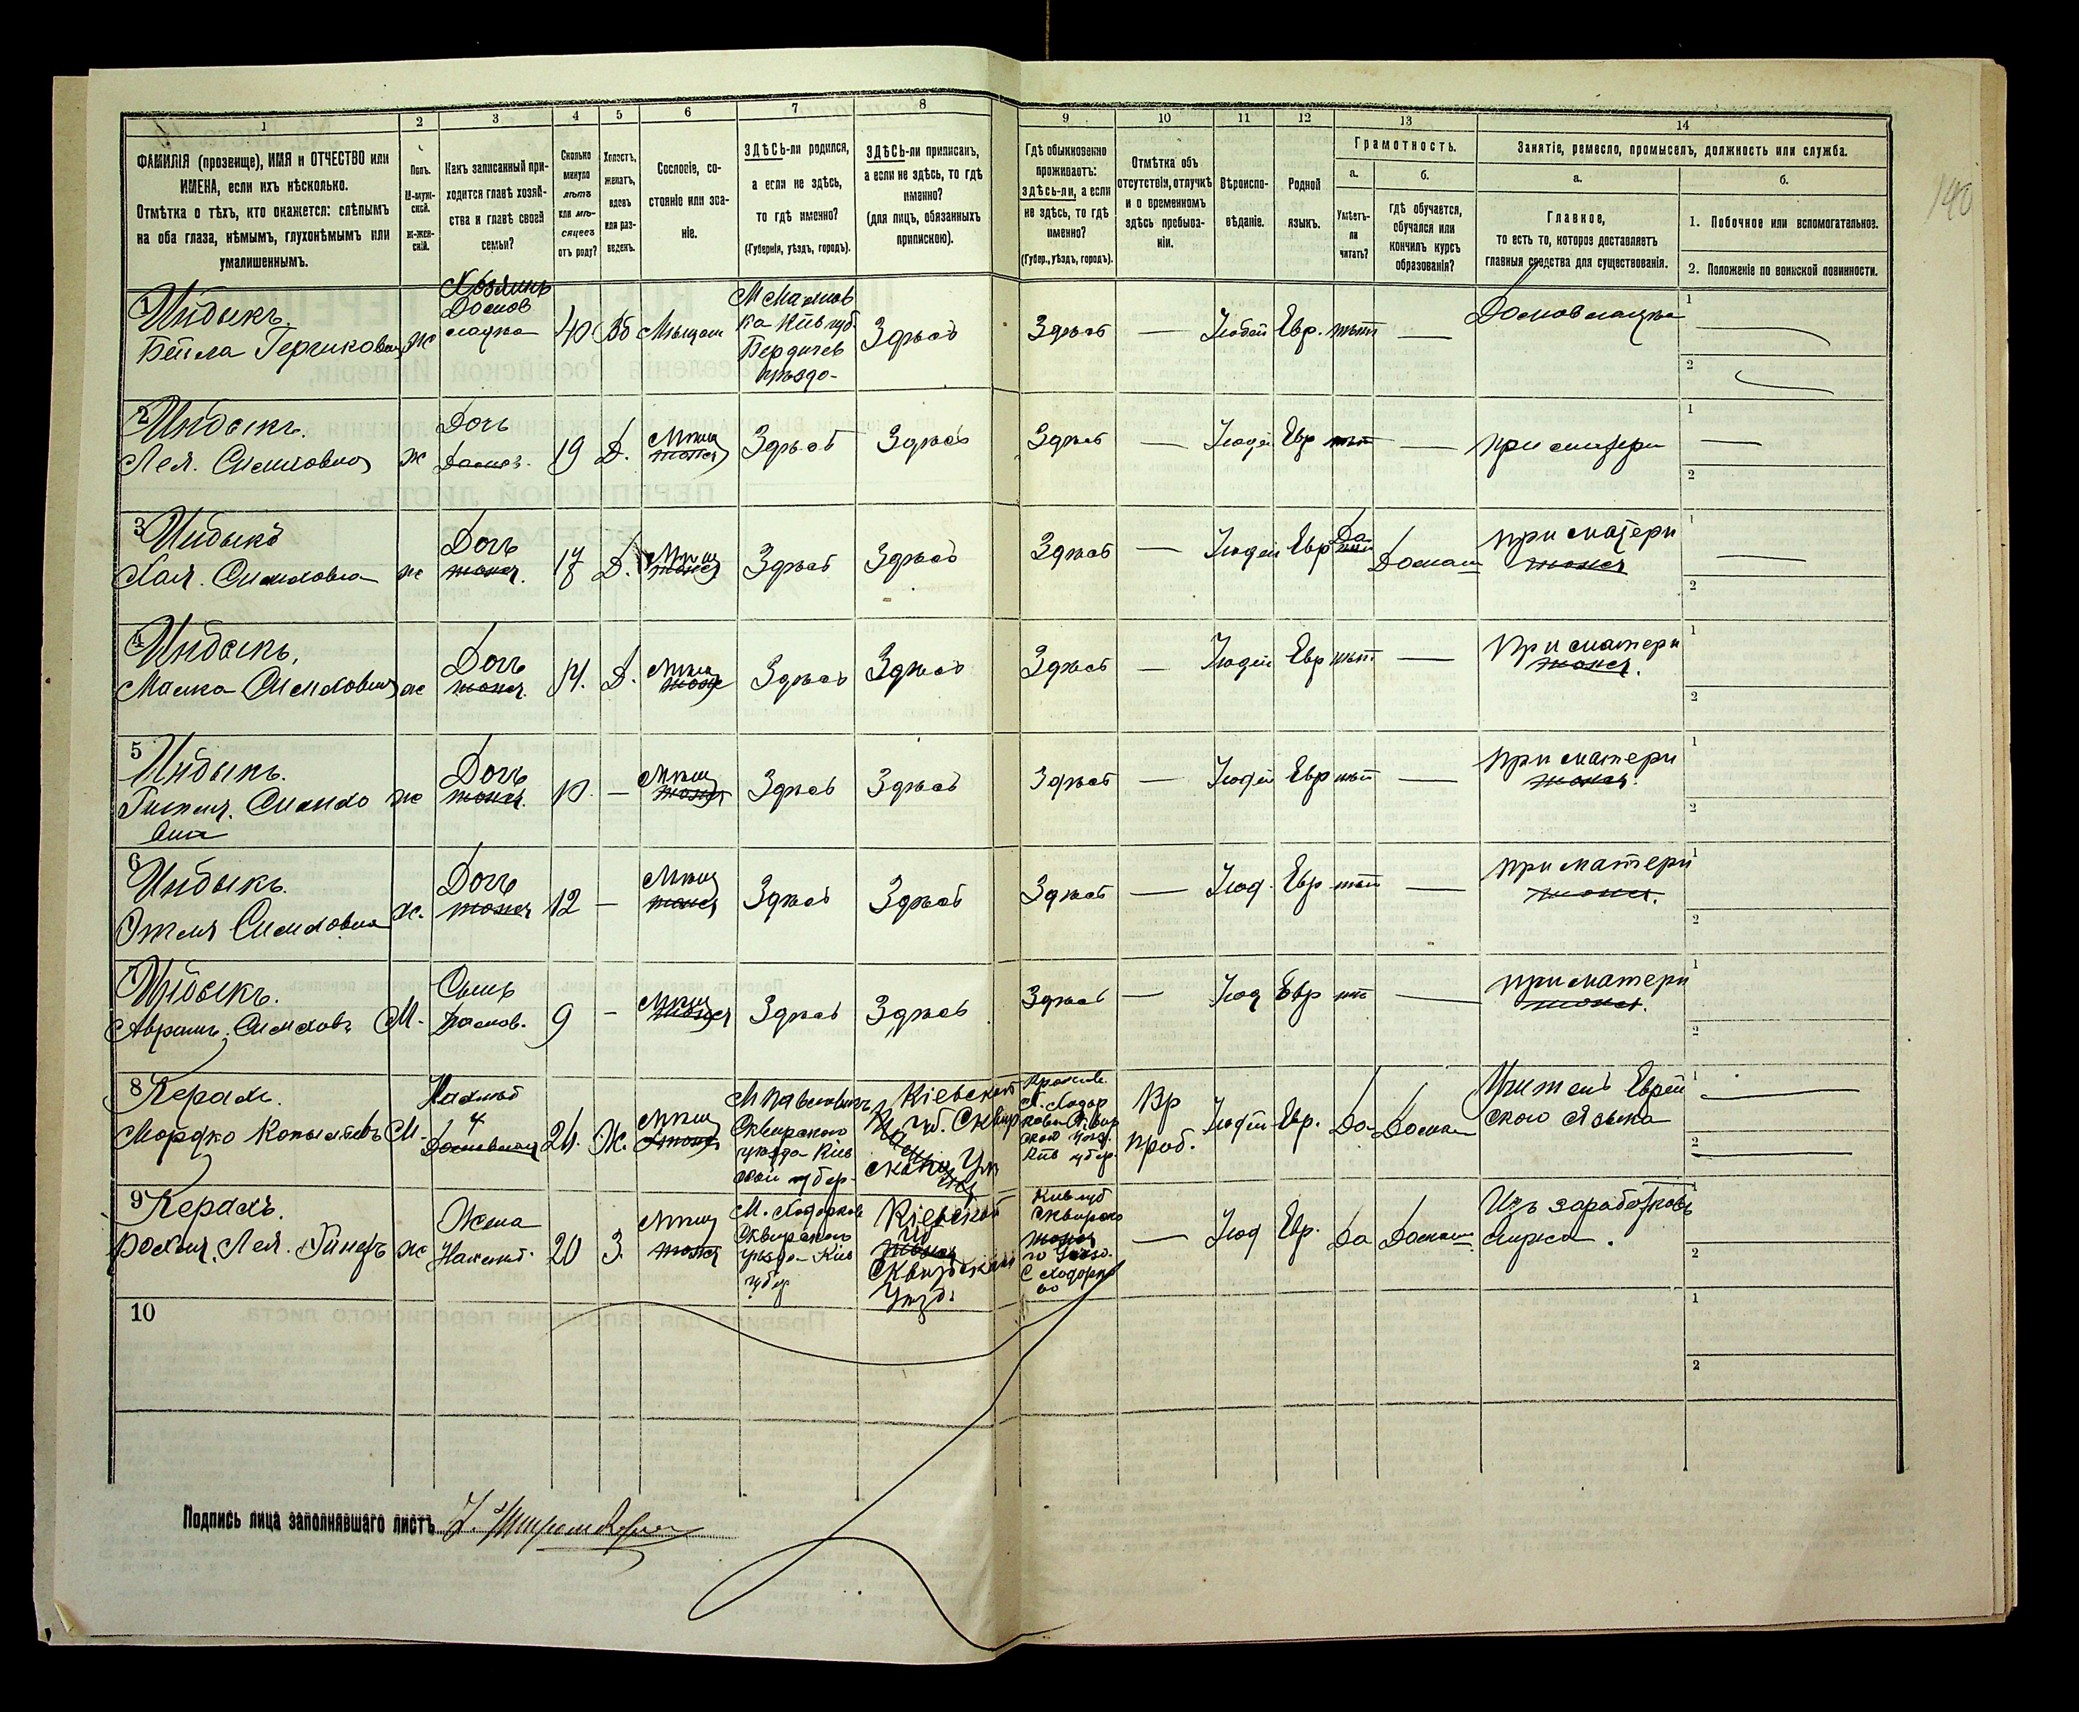 140
1
2
3
4
5
6
7
8
9
10
11
12
13
14
ФАМИЛІЯ (прозвище), ИМЯ и ОТЧЕСТВО или
ИМЕНА, если ихъ нѣсколько.
Отмѣтка о тѣхъ, кто окажется: слѣпымъ
на оба глаза, нѣмымъ, глухонѣмымъ или
умалишеннымъ.
Полъ.
М-муж-
ской.
Ж-жен-
скій.
Какъ записанный при-
ходится главѣ хозяй-
ства и главѣ своей
семьи?
Сколько
минуло
лѣтъ
или мѣ-
сяцевъ
отъ роду?
Холостъ,
женатъ,
вдовъ
или раз-
веденъ.
Сословіе, со-
стояніе или зва-
ніе.
ЗДѢСЬ-ли родился,
а если не здѣсь,
то гдѣ именно?
(Губернія, уѣздъ, городъ).
ЗДѢСЬ-ли приписанъ,
а если не здѣсь, то гдѣ
именно?
(для лицъ, обязанныхъ
припискою).
Гдѣ обыкновенно
проживаетъ:
здѣсь-ли, а если
не здѣсь, то гдѣ
именно?
(Губер., уѣздъ, городъ).
Отмѣтка объ
отсутствіи, отлучкѣ
и о временномъ
здѣсь пребыва-
ніи.
Вѣроиспо-
вѣданіе.
Родной
языкъ.
Грамотность.
а.
Умѣетъ-
ли
читать?
б.
Гдѣ обучается,
обучался или
кончилъ курсъ
образованія?
Занятіе, ремесло, промыселъ, должность или служба.
а.
Главное,
то есть то, которое доставляетъ
главныя средства для существованія.
б.
1. Побочное или вспомогательное.
2. Положеніе по воинской повинности.
1 Индыкъ
Бейла Гершковна
ж
Хозяинъ
Домов
ладка
40
Вд
Мѣщан
М Махнов
ка Кіев губ
Бердичев
уѣзда
Здѣсь
Здѣсь
—
Іюдей
Евр.
нѣт
—
Домовладка
1
2
2 Индыкъ.
Лея. Симховна
ж
Дочь
Домов.
19
Д.
Мѣщ
тоже
Здѣсь
Здѣсь
Здѣсь
—
Іюдей
Евр
нѣт
—
при матери
1
2
3 Индыкъ
Хая. Симховна
ж
Дочь
тоже.
17
Д.
Мѣщ
тоже
Здѣсь
Здѣсь
Здѣсь
—
Іюдей
Евр
Да
Домаш
при матери
тоже
1
2
4 Индыкъ.
Малка Симховна
ж
Дочь
тоже.
14.
Д.
Мѣщ
тоже
Здѣсь
Здѣсь
Здѣсь
—
Іюдей
Евр
нѣт
—
При матери
тоже.
1
2
5 Индыкъ.
Гитля. Симхо
вна
ж
Дочь
тоже.
10.
—
Мѣщ
тоже
Здѣсь
Здѣсь
Здѣсь
—
Іюдей
Евр
нѣт
—
при матери
тоже.
1
2
6 Индыкъ.
Этля Симховна
ж.
Дочь
тоже
12
—
Мѣщ
тоже
Здѣсь
Здѣсь
Здѣсь
—
Іюд.
Евр
нѣт
—
при матери
тоже.
1
2
7 Индыкъ.
Аврумъ. Симховъ
М.
Сынъ
Домов.
9
—
Мѣщ
тоже
Здѣсь
Здѣсь
Здѣсь
—
Іюд
Евр
нѣт
—
при матери
тоже.
1
2
8 Керахъ.
Мордко
М.
24.
Ж.
Мѣщ
тоже
Сквирского
уѣзда Кіев
ской губер.
Кіевской
губ. Сквир
Вр
проб.
Іюдей
Евр.
Да
Домаш
Учитель Еврей
ского языка
1
2
9 Керахъ.
Лея.
ж
Жена
20
З.
Мѣщ
тоже
М. Ходорков
Сквирского
уѣзда Кіев
губер
Кіевской
губ
тоже
Сквирскій
Уѣзд.
Кіев губ
Сквирско
тоже
—
Іюд
Евр.
Да
Домаш.
Изъ заработковъ
мужа.
1
2
10
1
2
Подпись лица заполнявшаго листъ